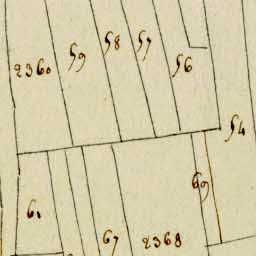 2360
59
58
57
56
54
61
67
2368
69